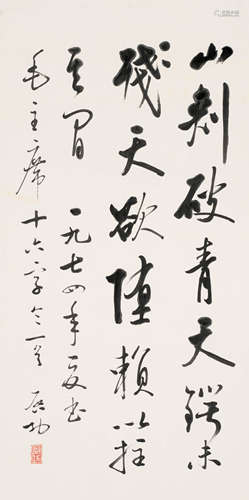 山刺破青天鍔未
殘天欲堕賴以拄
其間 一九七四年夏书
毛主席十六字令一首 启功